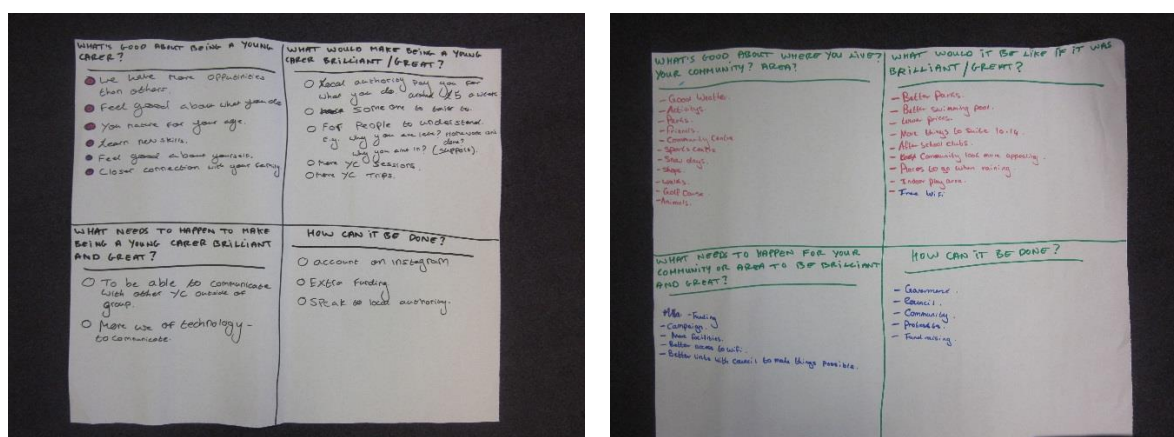 WHAT'S GOOD ABOUT BEING A YOUNG
CARER?
We have more oppunities
than others.
Feel good about what you do
You mature for your age.
Learn new skills.
Feel good about yourself.
Closer connection with your family
WHAT WOULD MAKE BEING A YOUNG
CARER BRILLIANT / GREAT?
Local authority pay you for
what you do. around £5 a week
Someone to talk to.
For People to understand.
e.g. why you are late? homework not
done?
why you are in? (support).
More YC Sessions.
More YC Trips.
WHAT NEEDS TO HAPPEN TO MAKE
BEING A YOUNG CARER BRILLIANT
AND GREAT?
To be able to communicate
with other YC outside of
group.
More use of technology -
to communicate.
HOW CAN IT BE DONE?
account on instagram
Extra Funding
Speak to local authority.
WHAT'S GOOD ABOUT WHERE YOU LIVE?
YOUR COMMUNITY? AREA?
- Good Weather.
- Activitys.
- Parks.
- Friends.
- Community Centre
- Sports
- Snow days.
- Shops.
- walks.
- Golf Course
- Animals.
WHAT WOULD IT BE LIKE IF IT WAS
BRILLIANT / GREAT?
- Better Parks.
- Better swimming pool.
- Lower prices.
- More things to suite 10-16.
- After school clubs.
- Community look more appealing.
- Places to go when raining
- Indoor play area.
- Free Wifi
WHAT NEEDS TO HAPPEN FOR YOUR
COMMUNITY OR AREA TO BE BRILLIANT
AND GREAT?
- Funding
- Campaign.
- More facilities.
- Better access to wifi.
- Better links with council to make things possible.
HOW CAN IT BE DONE?
- Government.
- Council.
- Community.
- Fund raising.